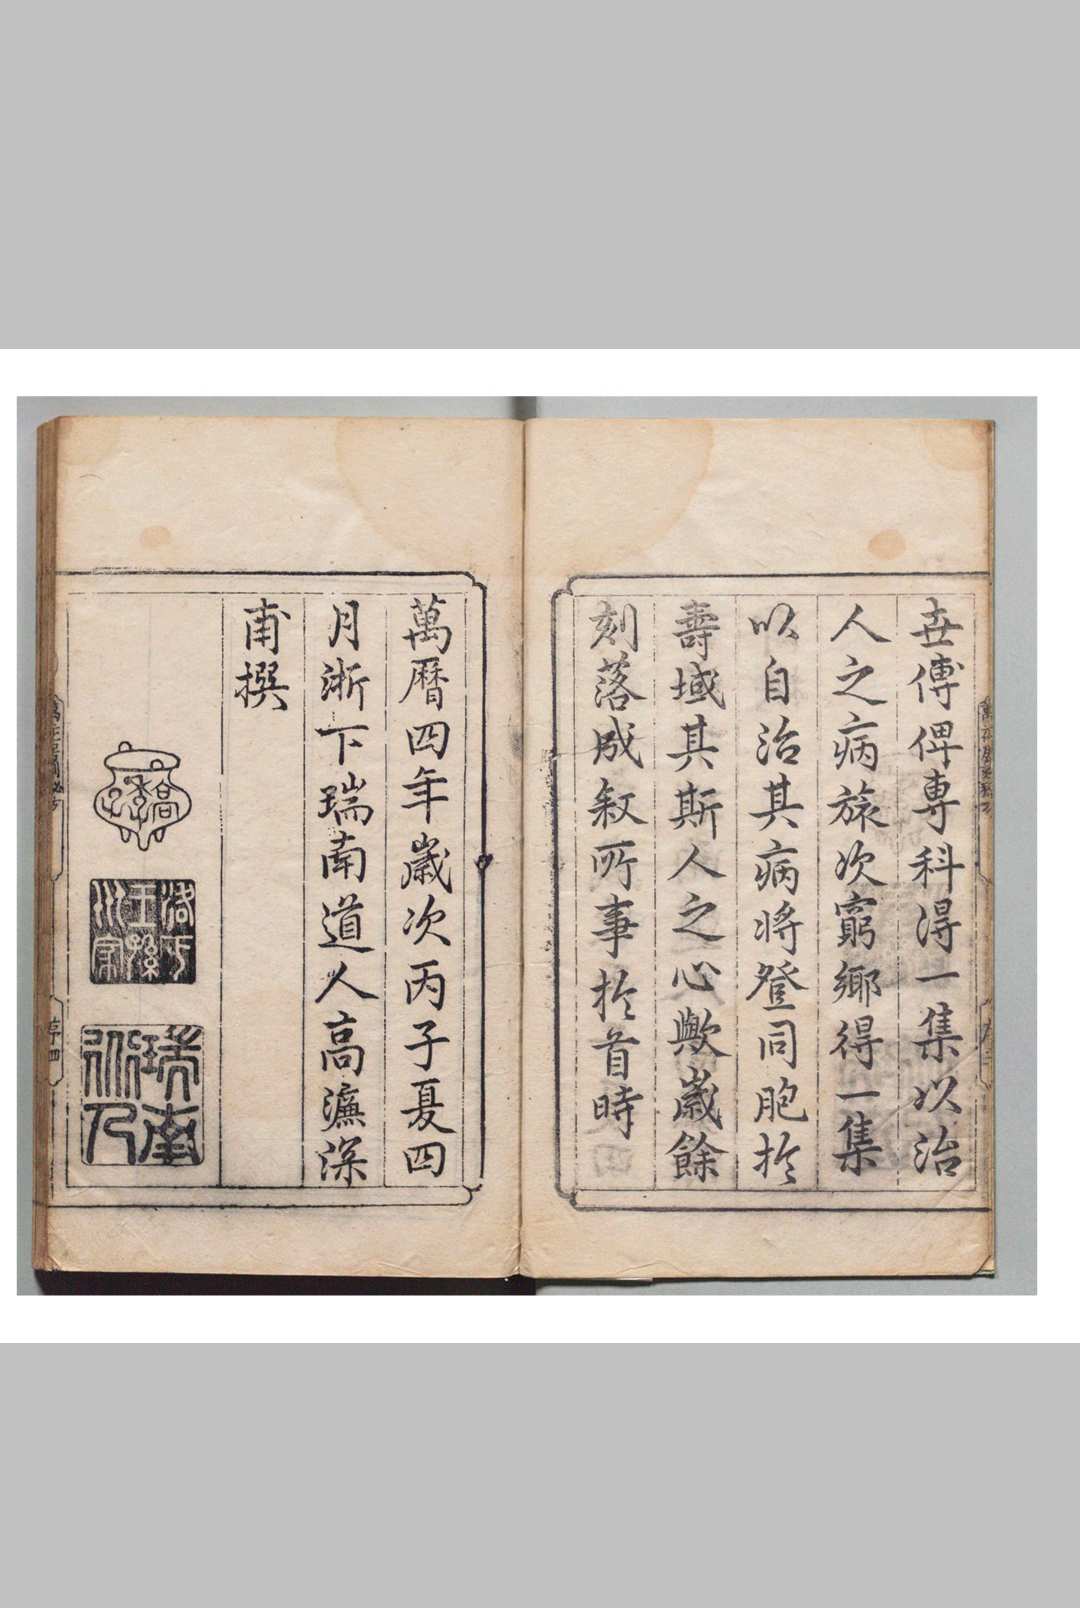 世傳俾專科得一集以治
人之病旅次窮鄉得一集
以自治其病將登同胞於
壽域其斯人之心歟歲餘
刻落成敘所事於首時
萬曆四年歲次丙子夏四
月浙下瑞南道人高濂深
甫撰
序四
瑞南